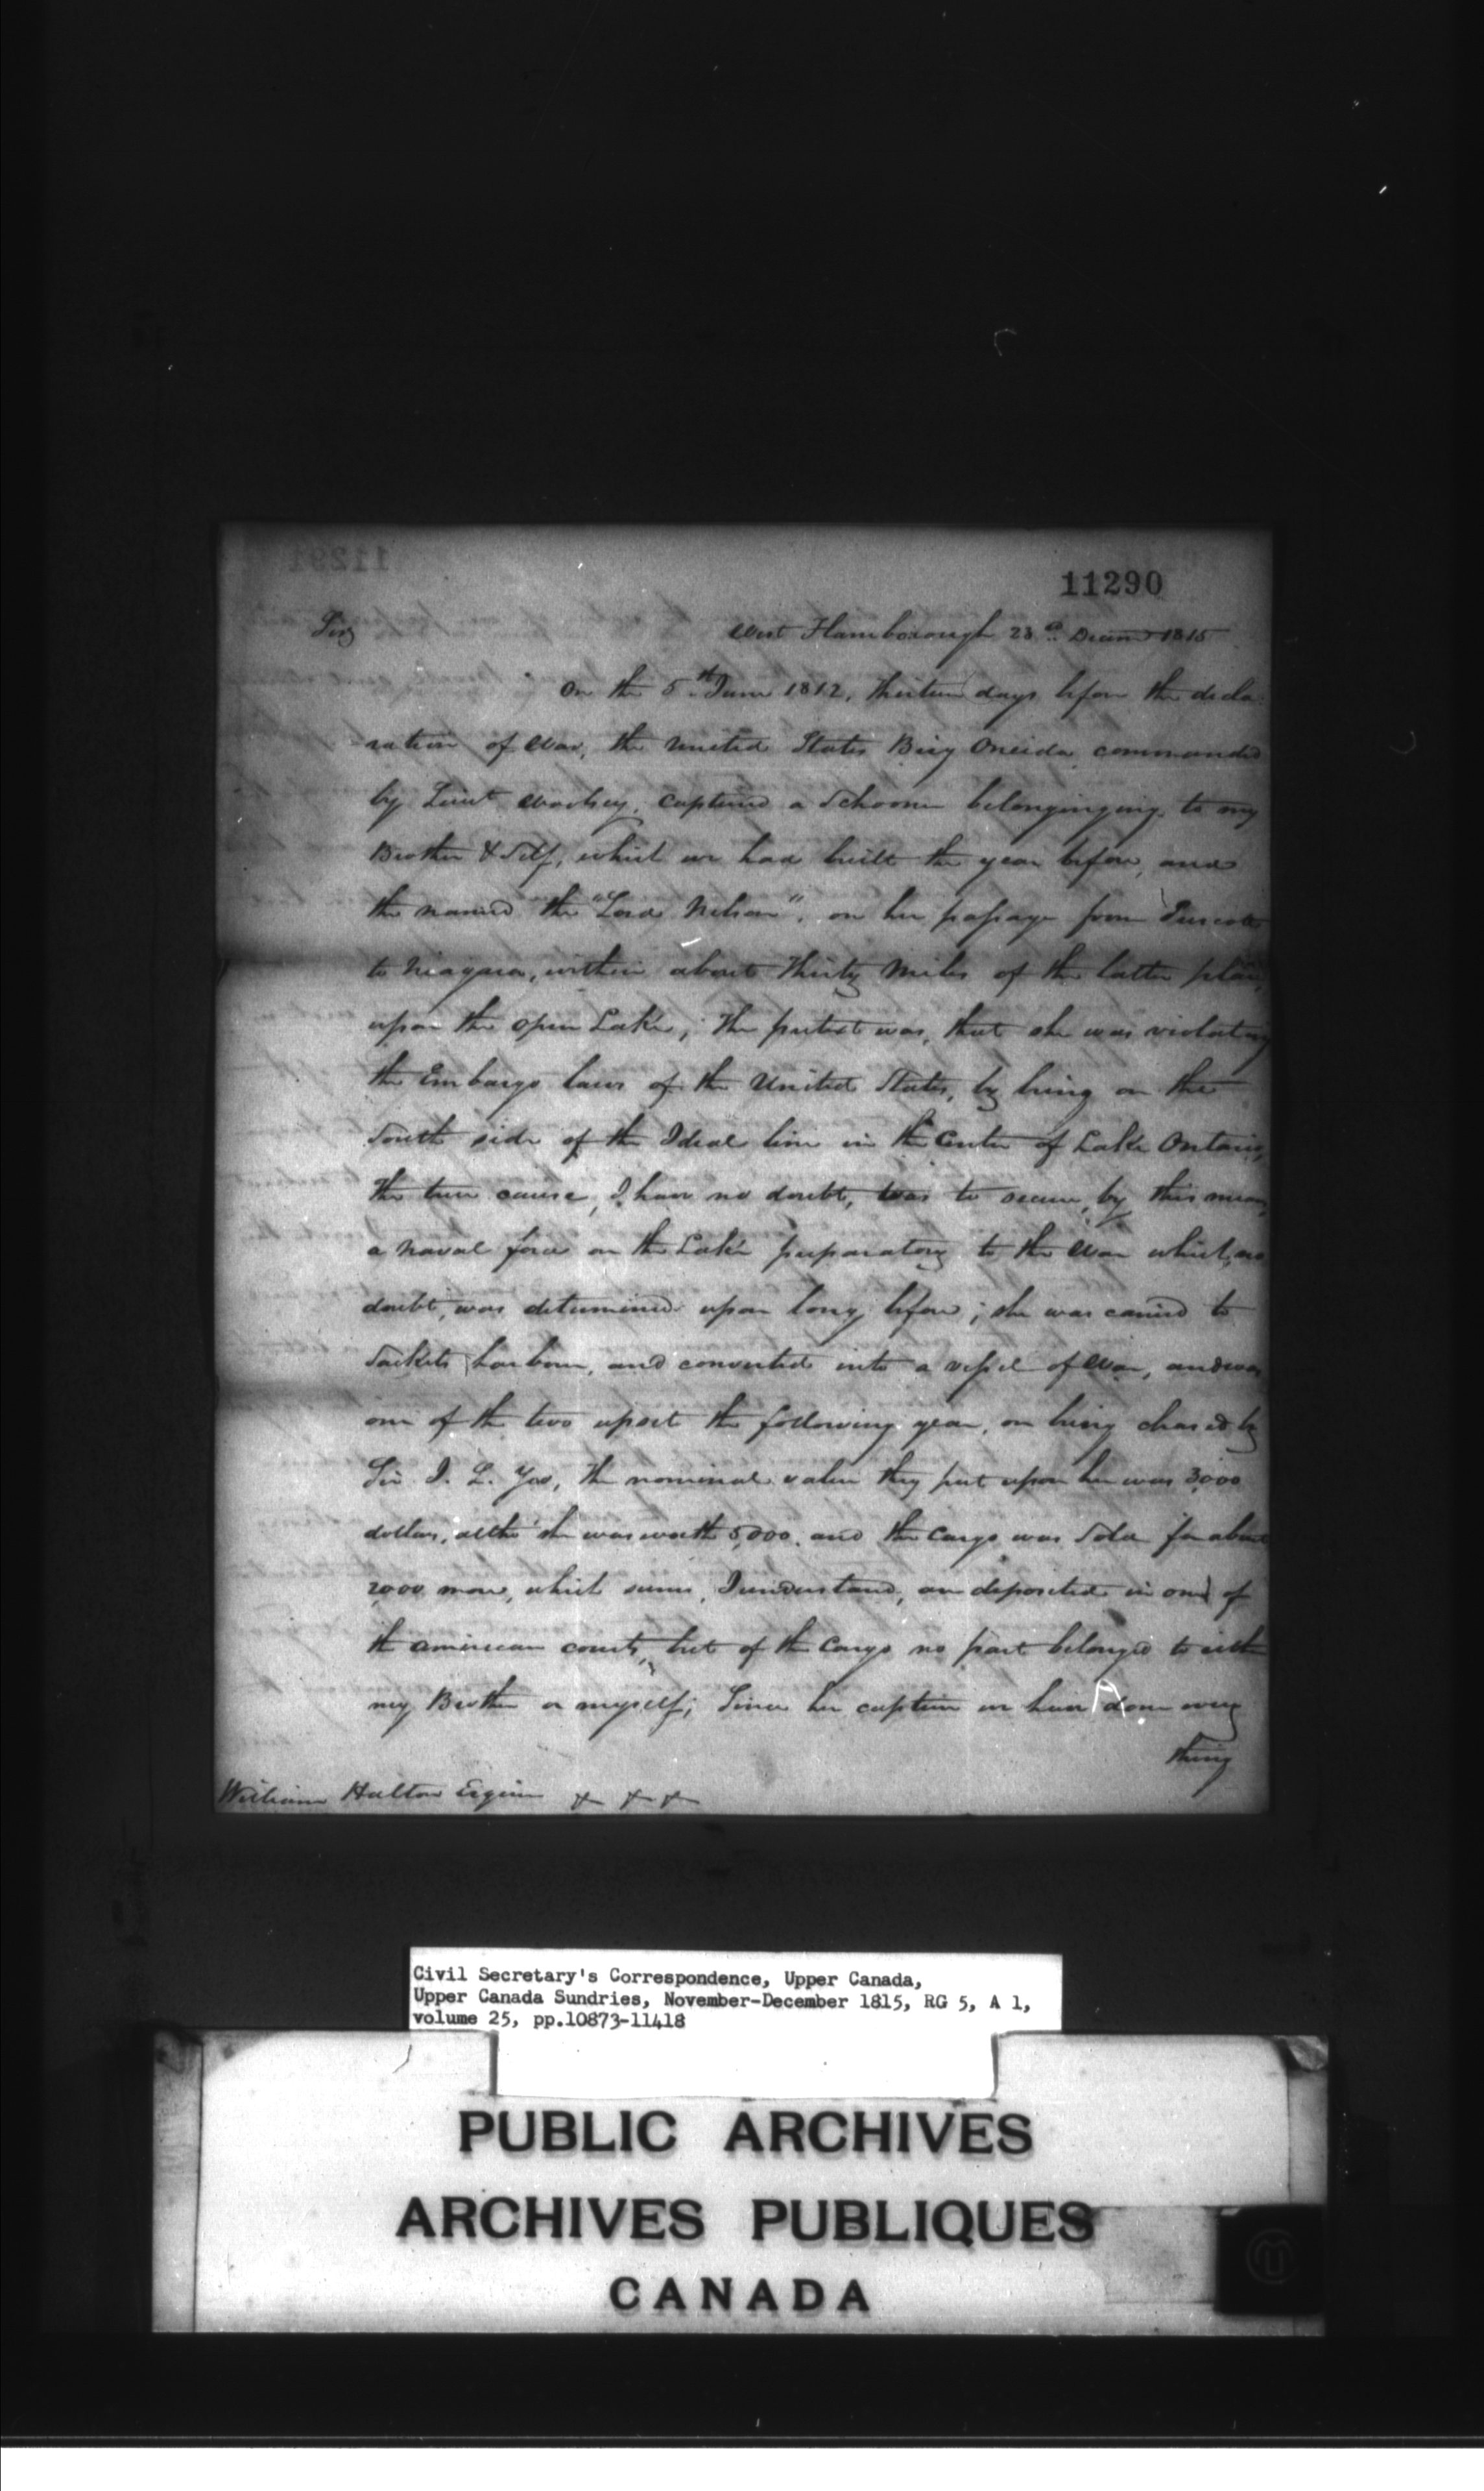 11290
Sir
West Flamborough 23d Decem 1815
On the 5th June 1812, thirteen days before the decla-
ration of War, the United States Brig Oneida commanded
by Lieut Woolsey, captured a Schooner belonginging to my
Brother & Self, which we had built the year before, and
the named the "Lord Nelson", on her passage from Prescott
to Niagara, within about Thirty Miles of the latter place,
upon the open Lake; The pretext was, that she was violating
the Embargo laws of the United States, by being on the
South side of the Ideal line in the Center of Lake Ontario,
The true cause, I have no doubt, was to secure, by this means,
a Naval force on the Lake preparatory to the War which, no
doubt, was determined upon long before; she was carried to
Sackets harbour, and converted into a vessel of War, and was
one of the two upset the following year, on being chased by
Sir J. L. Yeo, The nominal value they put upon her was 3,000
dollars, altho' she was worth 5,000, and the Cargo was Sold for about
2,000 more, which sums, I understand, are deposited in one of
the american courts, but of the Cargo no part belonged to either
my Brother or myself; Since her capture we have done every
thing
William Halton Esquire + + +
Civil Secretary's Correspondence, Upper Canada,
Upper Canada Sundries, November-December 1815, RG 5, A 1,
volume 25, pp.10873-11418
PUBLIC ARCHIVES
ARCHIVES PUBLIQUES
CANADA